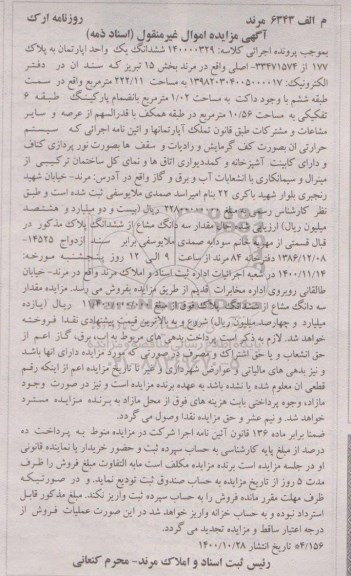 م الف ۶۳۴۳ مرند روزنامه ارک
آگهی مزایده اموال غیرمنقول (اسناد ذمه)
بموجب پرونده اجرائی کلاسه: ۱۴۰۰۰۰۳۲۹ ششدانگ یک واحد اپارتمان به پلاک
۱۷۷ از ۳۳۴۷۱۵۷۴- اصلی واقع در مرند بخش ۱۵ تبریز که سند ان در دفتر
الکترونیک: ۱۳۹۸۲۰۳۰۴۰۰۵۰۰۰۰۱۷ به مساحت ۲۲۲/۱۱ مترمربع واقع در سمت
طبقه ششم با وجود داکت به مساحت ۱/۰۲ مترمربع بانضمام پارکینگ طبقه ۶
تفکیکی به مساحت ۱۰/۵۶ مترمربع در طبقه همکف با قدرالسهم از عرصه و سایر
مشاعات و مشترکات طبق قانون تملک آپارتمانها و ائین نامه اجرائی که سیستم
حرارتی ان بصورت کف گرمایش و رادیات و سقف ها بصورت نور پردازی کناف
و دارای کابینت آشپزخانه و کمددیواری اتاق ها و نمای کل ساختمان ترکیبی از
مینرال و سیمانکاری با انشعابات آب و برق و گاز واقع در آدرس: مرند- خیابان شهید
رنجبری بلوار شهید باکری ۲۲ بنام امیراسد صمدی ملایوسفی ثبت شده است و طبق
نظر کارشناس رسمی به مبلغ ریال (بیست و دو میلیارد و هشتصد
میلیون ریال) ارزیابی شده حال مقدار سه دانگ مشاع از ششدانگ پلاک مذکور در
قبال قسمتی از مهریه خانم سودابه صمدی ملایوسفی برابر سند ازدواج ۱۴۵۲۵-
۱۳۸۶/۱۲/۰۸ دفترخانه ۸۴ مرند از ساعت ۹ الی ۱۲ روز پنجشنبه مورخه:
۱۴۰۰/۱۱/۱۴ در شعبه اجرائیات اداره ثبت اسناد و املاک مرند واقع در مرند- خیابان
طالقانی روبروی اداره مخابرات قدیم از طریق مزایده بفروش می رسد. مزایده مقدار
سه دانگ مشاع از ششدانگ پلاک فوق از مبلغ ریال (یازده
میلیارد و چهارصد میلیون ریال) شروع و به بالاترین قیمت پیشنهادی نقدا فروخته
خواهد شد. لازم به ذکر است پرداخت بدهی های مربوط به آب، برق، گاز اعم از
حق انشعاب و یا حق اشتراک و مصرف در صورتی که مورد مزایده دارای انها باشد
و نیز بدهی های مالیاتی و عوارض شهرداری و غیر تا تاریخ مزایده اعم از اینکه رقم
قطعی ان معلوم شده یا نشده باشد به عهده برنده مزایده است و نیز در صورت وجود
مازاد، وجوه پرداختی بابت هزینه های فوق از محل مازاد به برنده مزایده مسترد
خواهد شد. و نیم عشر و حق مزایده نقدا وصول می گردد.
ضمنا برابر ماده ۱۳۶ قانون آئین نامه اجرا شرکت در مزایده منوط به پرداخت ده
درصد از مبلغ پایه کارشناسی به حساب سپرده ثبت و حضور خریدار یا نماینده قانونی
او در جلسه مزایده است برنده مزایده مکلف است مابه التفاوت مبلغ فروش را ظرف
مدت ۵ روز از تاریخ مزایده به حساب صندوق ثبت تودیع نماید. و در صورتیکه
ظرف مهلت مقرر مانده فروش را به حساب سپرده ثبت واریز نکند. مبلغ مذکور قابل
استرداد نبوده و به حساب خزانه واریز خواهد شد در این صورت عملیات فروش از
درجه اعتبار ساقط و مزایده تجدید می گردد.
۴/۱۵۶* تاریخ انتشار ۱۴۰۰/۱۰/۲۸
رئیس ثبت اسناد و املاک مرند- محرم کنعانی